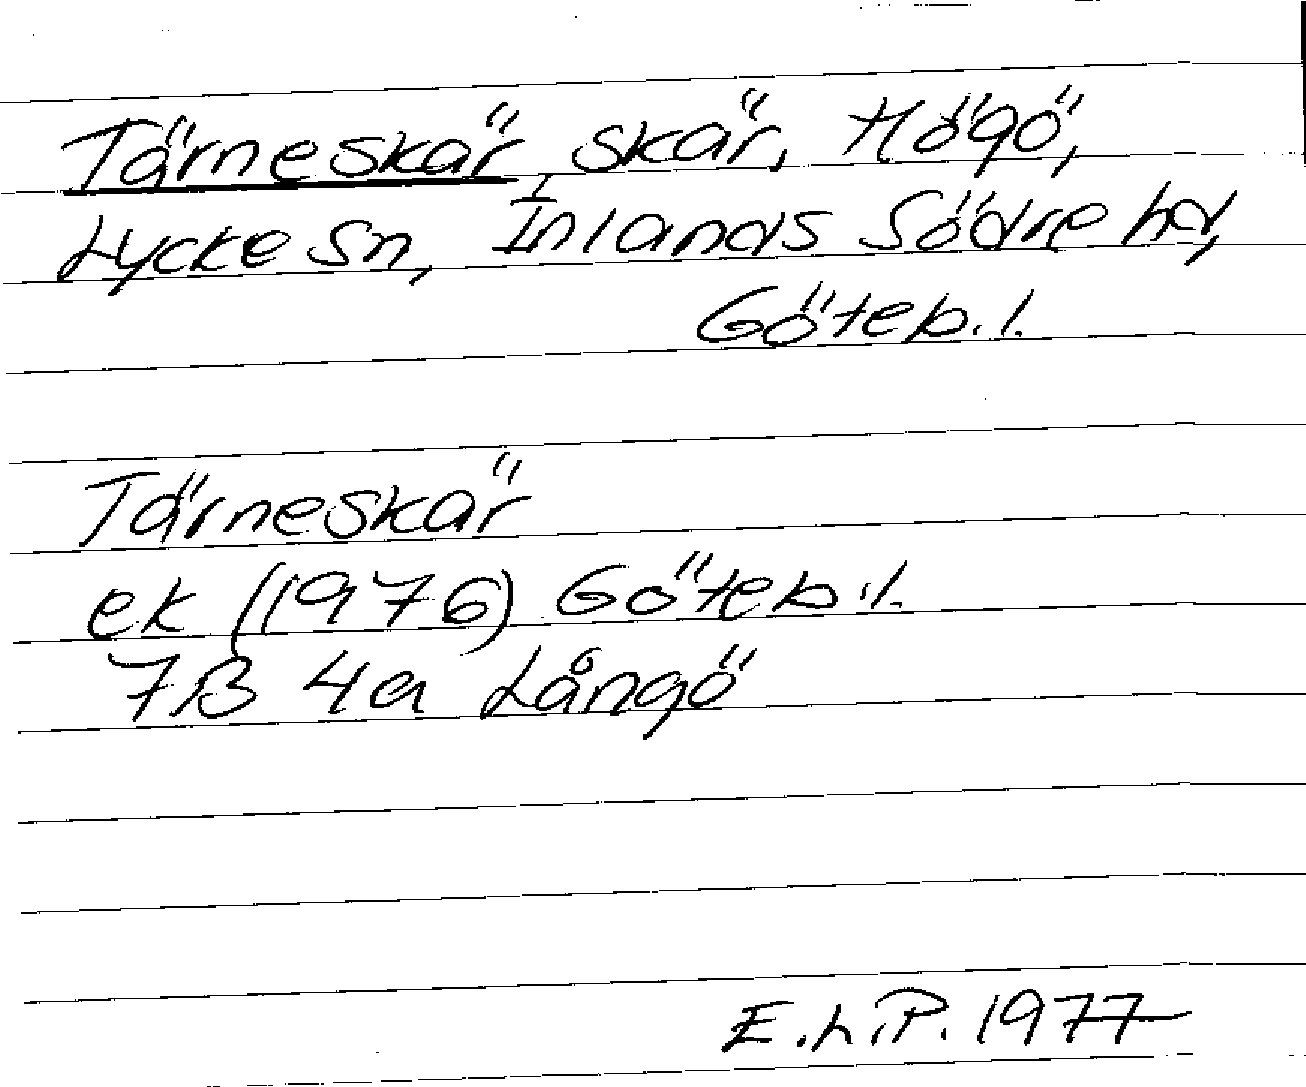 Tärneskär, skär, Högö,
Lycke sn, Inlands Södre hd,
Göteb. l.
Tärneskär
ek (1976) Göteb. l.
7B 4a Långö
E.L.P. 1977